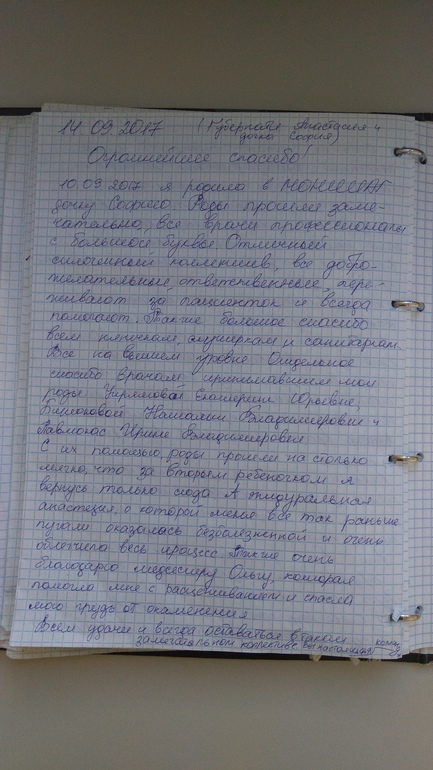 14.09.2017 ( Анастасия и
дочка София)
Огромнейшее спасибо!
10.09.2017 я родила в МОНИИАГ
дочу Софию. Роды прошли заме-
чательно, все врачи профессионалы
с большой буквы. Отличный
сплоченный коллектив, все добро-
желательные, ответственные, пере-
живают за пациенток и всегда
помогают. Также большое спасибо
всем нянечкам, акушеркам и санитаркам.
Все на высшем уровне. Отдельное
спасибо врачам принимавшим мои
роды Екатерине Юрьевне,
Наталии Владимировне и
Ирине Владимировне.
С их помощью, роды прошли на столько
легко, что за вторым ребеночком я
вернусь только сюда. А эпидуральная
анастезия, о которой меня все так раньше
пугали оказалась безболезненной и очень
облегчила весь процесс. Также очень
благодарю медсестру Ольгу, которая
помогла мне с расцеживанием и спасла
мою грудь от окаменения.
Всем удачи и всегда оставаться в таком
замечательном коллективе. Вы настоящая